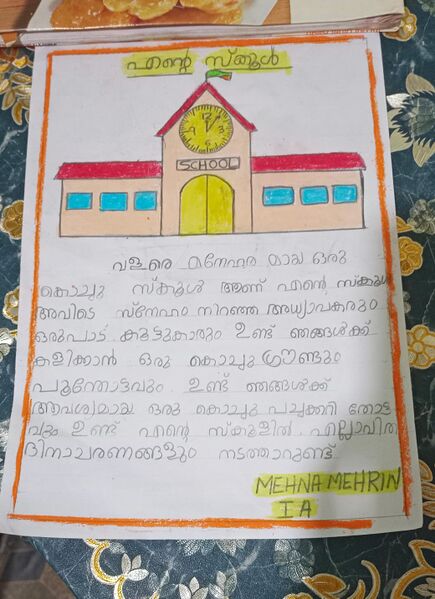 എന്റെ സ്കൂൾ
12
3
6
9
SCHOOL
വളരെ മനേഹര മായ ഒരു
കൊച്ചു സ്കൂൾ ആണ് എന്റെ സ്കൂൾ
അവിടെ സ്നേഹം നിറഞ്ഞ അധ്യാപകരും
ഒരുപാട് കൂട്ടുകാരും ഉണ്ട് ഞങ്ങൾക്ക്
കളിക്കാൻ ഒരു കൊച്ചു ഗ്രൗണ്ടും
പൂന്തോട്ടവും ഉണ്ട് ഞങ്ങൾക്ക്
ആവശ്യമായ ഒരു കൊച്ചു പച്ചക്കറി തോട്ട
വും ഉണ്ട് എന്റെ സ്കൂളിൽ എല്ലാവിത
ദിനാചരണങ്ങളും നടത്താറുണ്ട്
MEHNA MEHRIN
I A